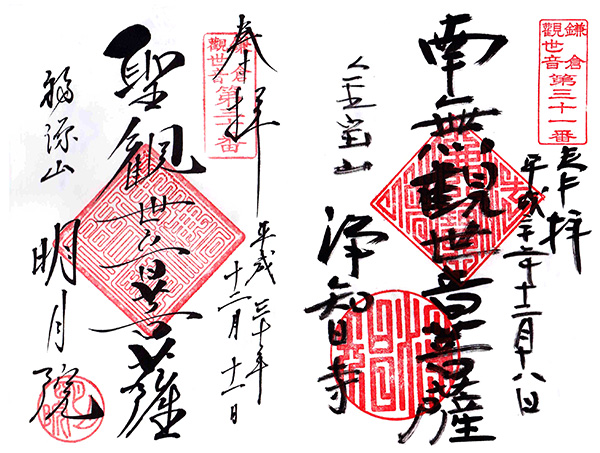 鎌倉
觀世音
第三十一番
奉拝
平成三十年十二月十八日
南無觀世音菩薩
金宝山
淨智寺
鎌倉
觀世音
第三十番
奉拝
平成三十年
十二月十一日
聖觀世音菩薩
福源山
明月院